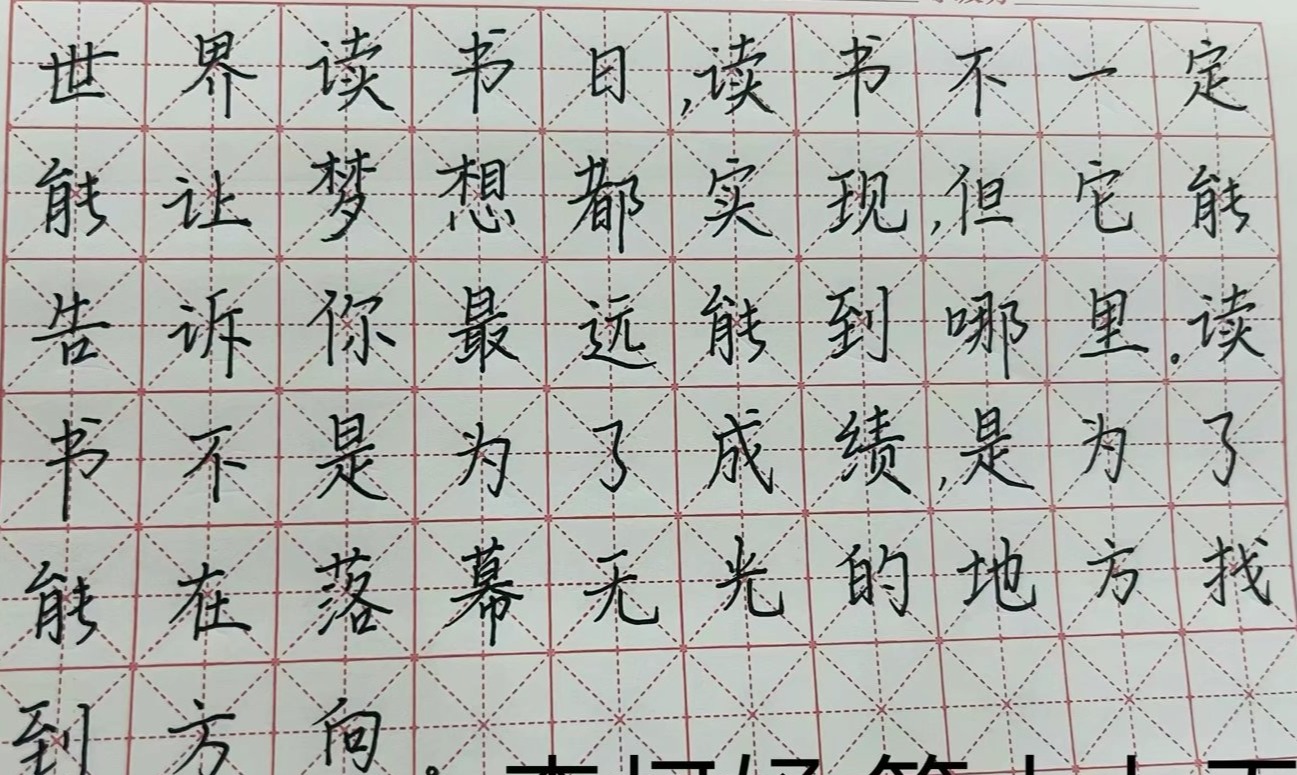 世界读书日,读书不一定
能让梦想都实现,但它能
告诉你最远能到哪里.读
书不是为了成绩,是为了
能在落幕无光的地方找
到方向